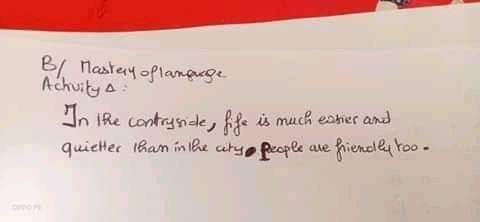 B/ Mastery of language
Activity A :
In the contryside, life is much easier and
quietter than in the city. People are friendly too.
OPPO F5